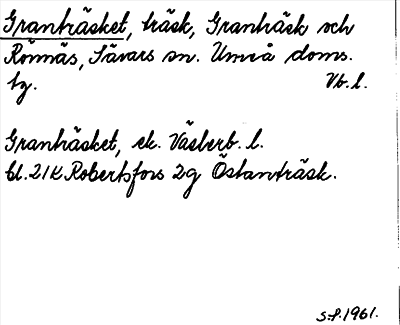 Granträsket, träsk, Granträsk och
Rönnäs, Sävars sn. Umeå doms.
tg. Vb. l.
Granträsket, ek. Västerb. l.
bl. 21K Robertsfors 2g Östanträsk.
S.P. 1961.